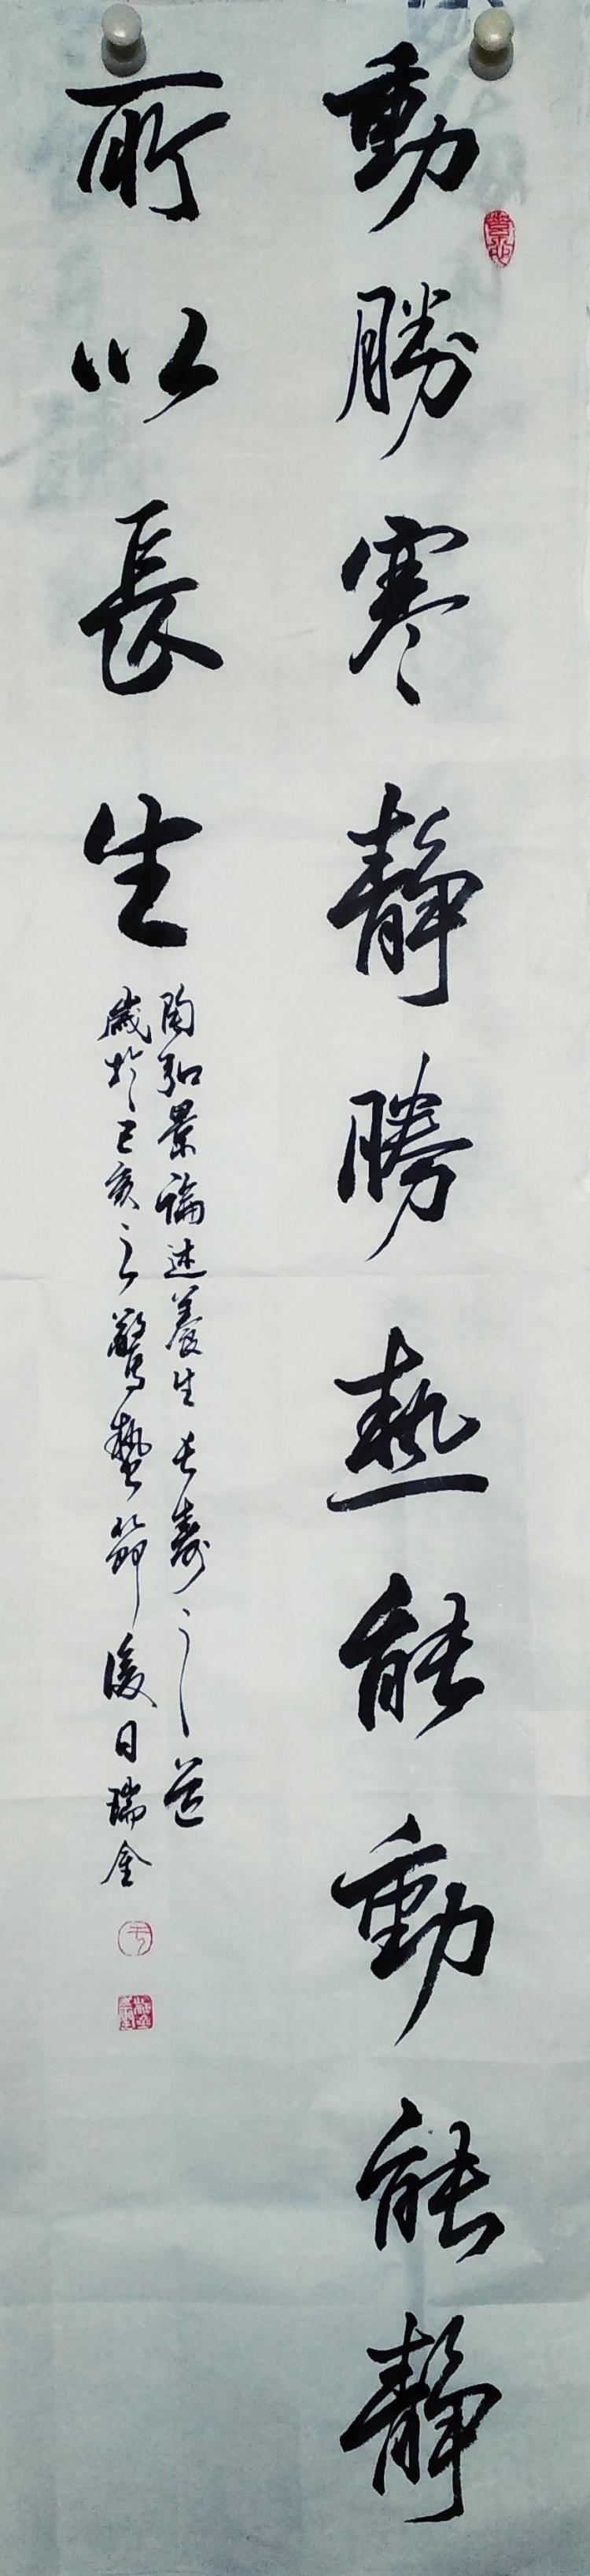 動勝寒靜勝熱能動能靜
所以長生
陶弘景論述養生長壽之道
歲於己亥之驚蟄節後日瑞金